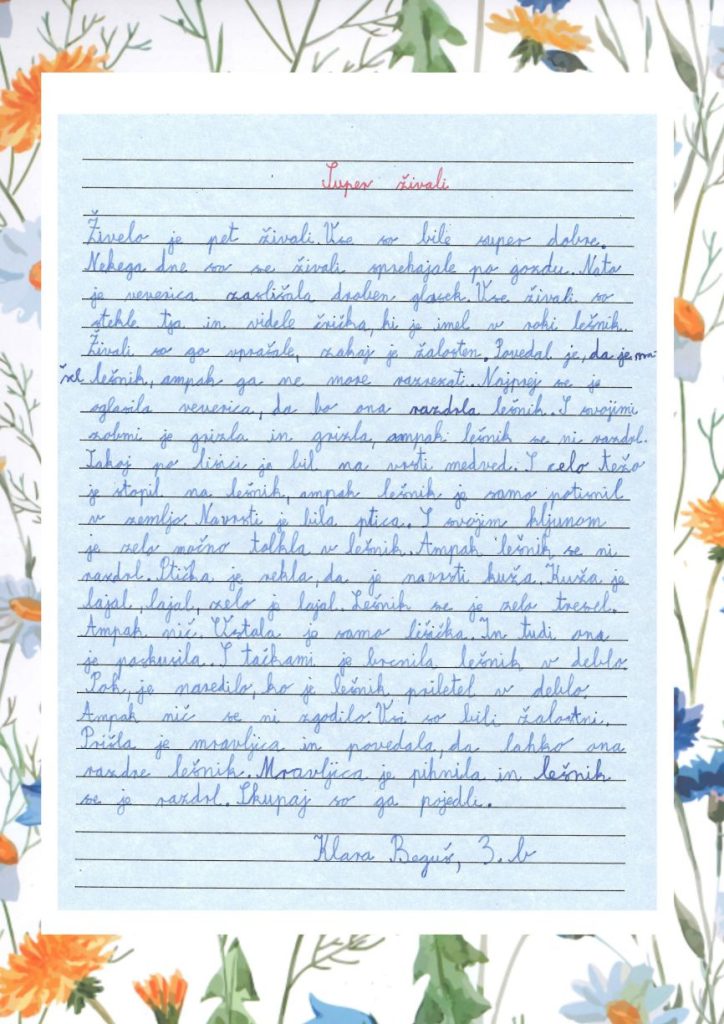 Super živali
Živelo je pet živali. Vse so bile super dobre.
Nekega dne so se živali sprehajale po gozdu. Nato
je veverica zaslišala droben glasek. Vse živali so
stekle tja in videle črička, ki je imel v roki lešnik.
Živali so go vprašale, zakaj je žalosten. Povedal je, da je na-
šel lešnik, ampak ga ne more razrezati. Najprej se je
oglasila veverica, da bo ona razdrla lešnik. S svojimi
zobmi je grizla in grizla, ampak lešnik se ni razdrl.
Takoj po lisici je bil na vrsti medved. S celo težo
je stopil na lešnik, ampak lešnik je samo potisnil
v zemljo. Navrsti je bila ptica. S svojim kljunom
je zelo močno tolkla v lešnik. Ampak lešnik se ni
razdrl. Ptička je rekla, da je navrsti kuža. Kuža je
lajal, lajal, zelo je lajal. Lešnik se je zelo tresel.
Ampak nič. Ustala je samo lisička. In tudi ona
je poskusila. S tačkami je brcnila lešnik v deblo.
Pok, je naredilo, ko je lešnik priletel v deblo.
Ampak nič se ni zgodilo. Vsi so bili žalostni.
Prišla je mravljica in povedala, da lahko ona
razdre lešnik. Mravljica je pihnila in lešnik
se je razdrl. Skupaj so ga pojedli.
Klara Beguš, 3. b